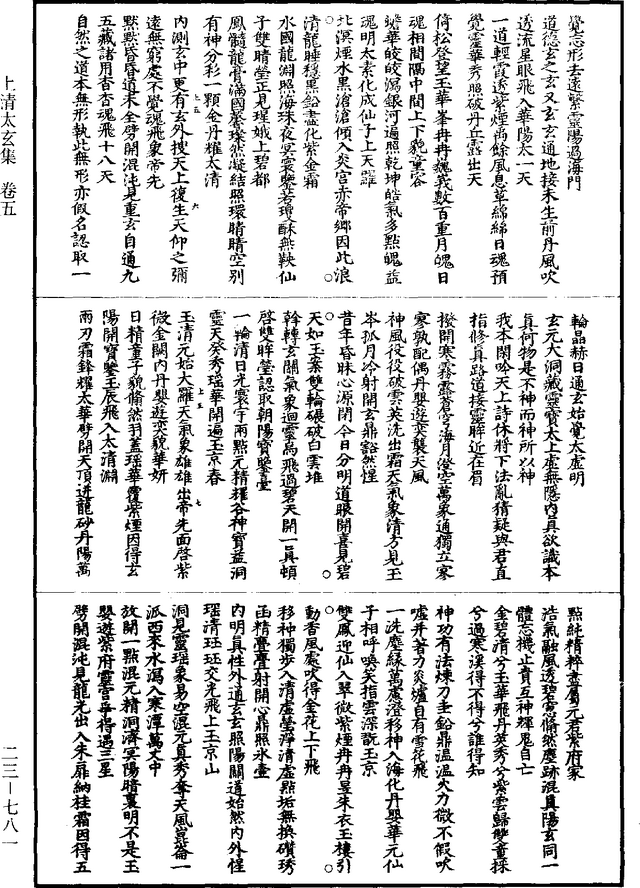 覺志形去遠紫靈陽過海門
道德玄之玄又玄玄通地接未生前丹風吹
透流星眼飛入華陽太一天
一道輕霞透紫煙尚餘風息草綿綿日魂預
覺靈華秀照破丹丘露出天
倚松登望玉華峯冉冉巍巍數百重月魄日
魂相間隔中間上下藐童容
蟾華皎皎瀉銀河遍照乾坤皓氣多點魄益
魂明太素化成仙子上天羅
北溟煙水黑滄滄傾入炎宮亦帝鄉因此浪
清龍睡穩黑鉛盡化紫金霜
水國龍淵照海珠夜冥寰鑒若瓊酥無鞅仙
子雙睛瑩正見瑤娥上碧都
鳳髓龍膏滿國馨璨然凝結照環睛睛空別
有神分彩一顆金丹耀太清
內測玄中更有玄外搜天上復生天仰之彌
遠無窮處不覺魂飛象帝先
點點昏昏道未全劈開混沌見重玄自通九
五藏諸用杳杳魂飛十八天
自然之道本無形執此無形亦假名認取一
輪晶赫日通玄始覺太虛明
玄元大洞藏靈寶太上虛無隱內真欲識本
真何物是不神而神所以神
我本閑吟天上詩休將下法亂猜疑與君直
指修真路道接靈眸近在眉
撥開寒霧露蒼穹海月澄空萬象通獨立寥
寥孰配偶丹嬰遊奕襲天風
神風役役破雲英洗出霜天氣象清方見玉
岑孤月冷射開玄鼎豁然惺
昔年昏昧心源閉今日分明道眼開喜見碧
天如玉案雙輪碾破白雲堆
斡轉玄關氣象迴靈烏飛過碧天開一真頓
啓雙眸瑩認取朝陽寶鑒臺
一輪清日光寰宇兩點元精耀谷神寶益洞
靈天癸秀瑤華開遍玉京春
玉清元始大羅天氣象雄雄出帝先面啓紫
微金闕內丹嬰遊奕貌華妍
日精童子貌翛然羽蓋瑤華覆紫煙因得玄
陽開寶鑒玉辰飛入太清淵
兩刃霜鋒耀太華劈開天頂迸龍砂丹陽萬
點純精粹盡屬元君紫府家
浩氣融風透碧霄翛然塵跡混真陽玄同一
體忘機止貢互神輝鬼自亡
金碧清兮玉華飛丹英秀兮紫雲歸雙童採
兮過寒溪得不得兮誰得知
神功有法煉刀圭鉛鼎溫溫火力微不假吹
噓并著力炎爐自有雪花飛
一洗塵緣萬慮澄移神入海化丹嬰華元仙
子相呼喚笑指雲深訪玉京
雙鳳迎仙入翠微紫煙冉冉惹朱衣玉樓引
動香風處吹得金花上下飛
移神獨步入清虛瑩淨清虛點垢無換礸琇
函精疊疊射開心鼎照氷壺
內明真性外通玄玄照陽關道始然內外惺
瑤清珏珏交光飛上玉京山
洞見靈瑤象易空混元真秀奪天風崑崙一
派西來水瀉入寒潭萬丈中
放開一點混元精洞濟冥陽暗裏明不是玉
嬰遊紫府靈宮爭得遇三星
劈開混沌見龍光出入朱扉納桂霜因得五
上清太玄集 卷五
二三—七八一